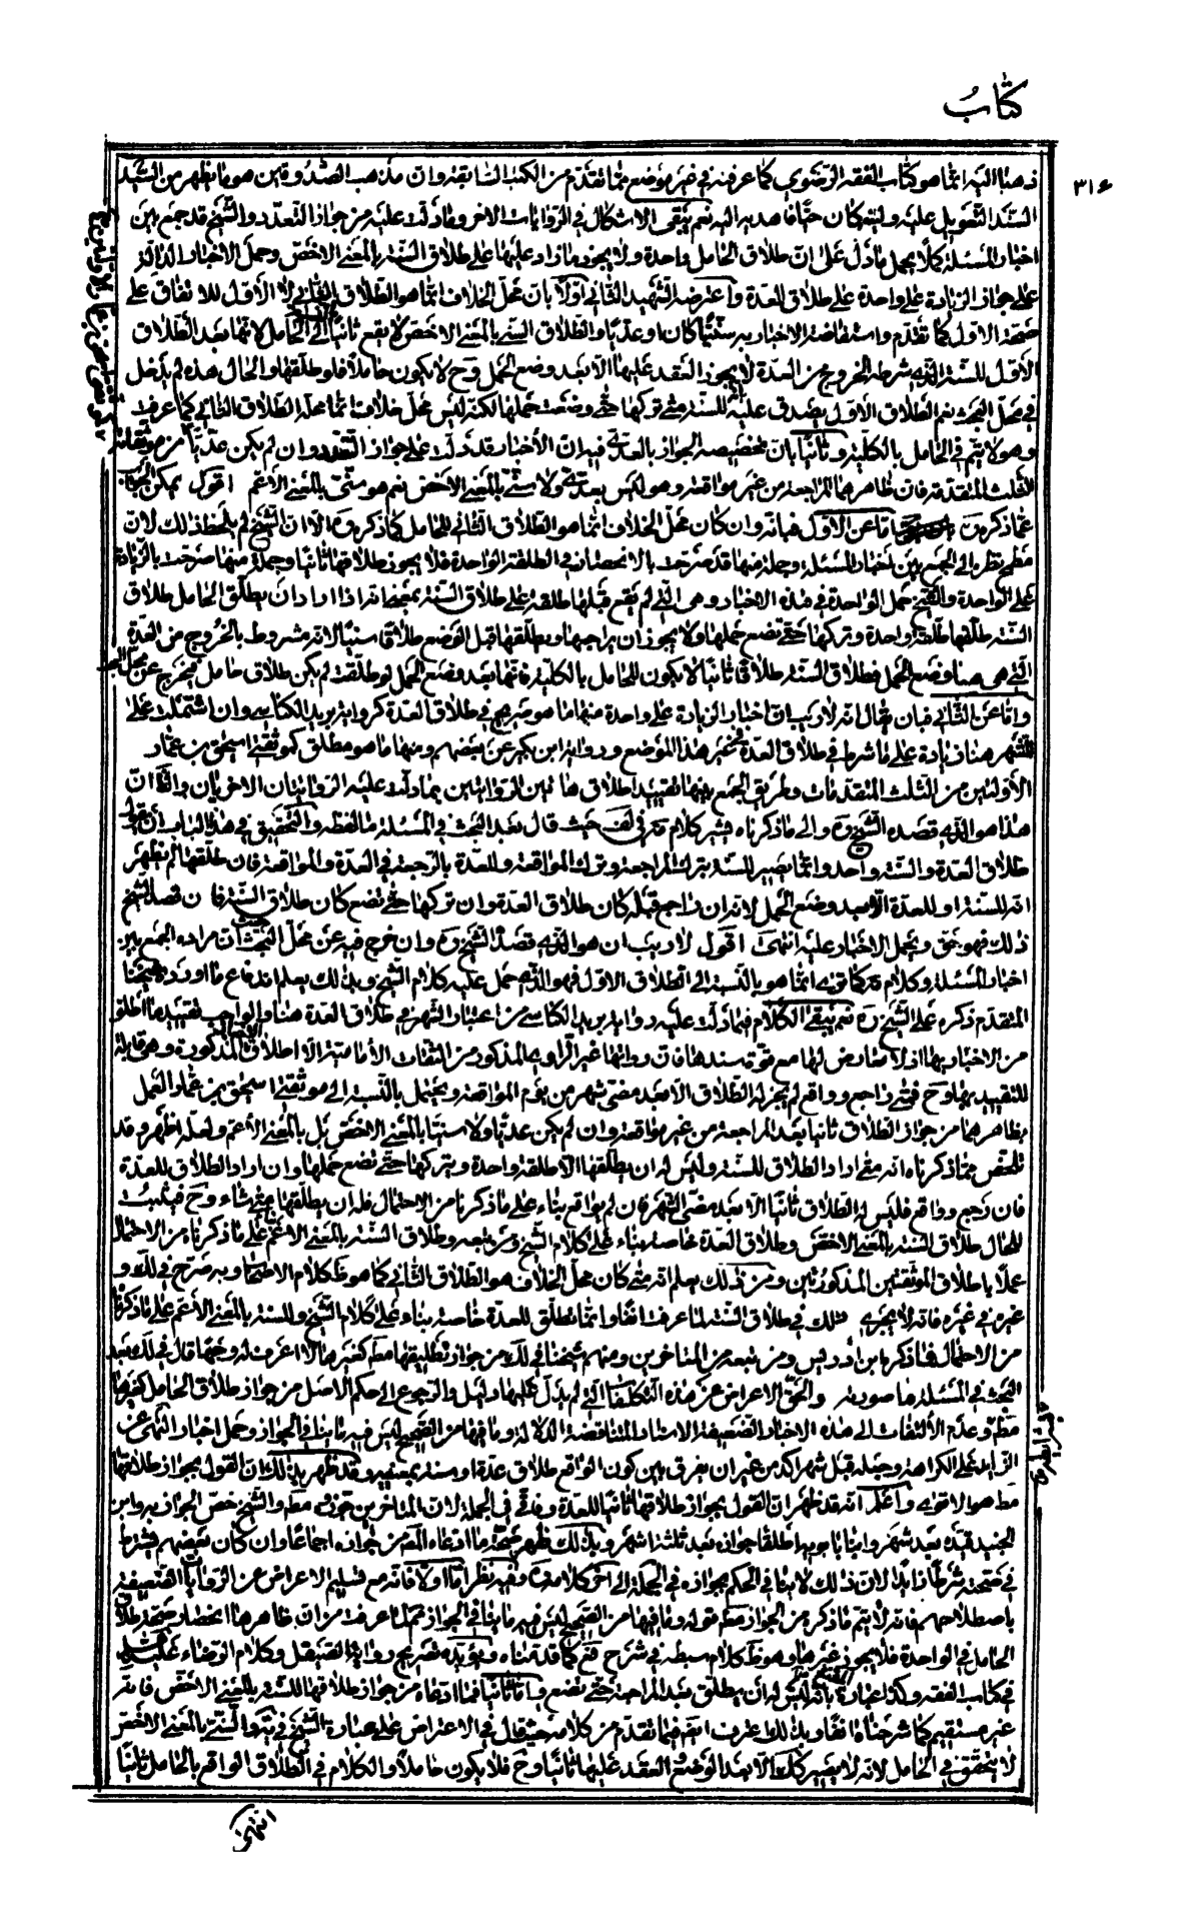 كتاب
٣١٤
ذهبا اليه انما هو كتاب الفقه الرضوي كما عرفته في غير موضع مما تقدم من الكتب السابقة وان مذهب الصدوقين هو ما يظهر من السيد
السند التعويل عليه وليته كان حيا فاهديه اليه نعم يبقى الاشكال في الروايات الاخر وما دلت عليه من جواز التعدد والشيخ قد جمع بين
اخبار المسئلة كملا بحمل ما دل على ان طلاق الحامل واحدة ولا يجوز ما زاد عليها على طلاق السنة بالمعنى الاخص وحمل الاخبار الدالة
على جواز الزيادة على واحدة على طلاق العدة واعترضه الشهيد الثاني اولا بان محل الخلاف انما هو الطلاق الثاني لا الاول للاتفاق على
صحة الاول كما تقدم واستفاضة الاخبار به سنيا كان او عديا والطلاق السني بالمعنى الاخص لا يقع ثانيا الى الحامل لانها بعد الطلاق
الاول للسنة الذي شرطه الخروج من العدة لا يجوز العقد عليها الا بعد وضع الحمل وح لا يكون حاملا فلو طلقها والحال هذه لم يدخل
في محل البحث نعم الطلاق الاول يصدق عليه للسنة متى تركها حتى وضعت حملها لكنه ليس محل خلاف انما محله الطلاق الثاني كما عرفت
وهو لا يتم في الحامل بالكلية وثانيا بان تخصيصه الجواز بالعدي فيه ان الاخبار قد دلت على جواز التعدد وان لم يكن عديا
الثلث المتقدمة فان ظاهرها المراجعة من غير مواقعة وهو ليس بعدي ولا سني بالمعنى الاخص نعم هو سني بالمعنى الاعم اقول يمكن الجواب
عما ذكره اما عن الاول فبانه وان كان محل الخلاف انما هو الطلاق الثاني للحامل كما ذكره الا ان الشيخ لم يلحظ ذلك لان
مطمح نظره الى الجمع بين اخبار المسئلة وجملة منها قد صرحت بالانحصار في الطلقة الواحدة فلا يجوز طلاقها ثانيا وجملة منها صرحت بالزيادة
على الواحدة والشيخ حمل الواحدة في هذه الاخبار وهي التي لم يقع قبلها طلقة على طلاق السنة بمعنى انه اذا اراد ان يطلق الحامل طلاق
السنة طلقها طلقة واحدة وتركها حتى تضع حملها ولا يجوز ان يراجعها ويطلقها قبل الوضع طلاقا سنيا لانه مشروط بالخروج من العدة
التي هي هنا وضع الحمل فطلاق السنة طلاقا ثانيا لا يكون للحامل بالكلية فانها بعد وضع الحمل لو طلقت لم يكن طلاق حامل فيخرج عن محل البحث
واما عن الثاني فبان يقال انه لا ريب ان اخبار الزيادة على واحدة منها ما هو صريح في طلاق العدة كرواية يزيد الكناسي وان اشتملت على
الشهر هنا زيادة على ما شرط في طلاق العدة في غير هذا الموضع ورواية ابن بكير عن بعضهم ومنها ما هو مطلق كموثقتي اسحق بن عمار
الاولتين من الثلث المتقدمات وطريق الجمع بينها تقييد اطلاق هاتين الروايتين بما دلت عليه الروايتان الاخريان
هذا هو الذي قصده الشيخ ره والى ما ذكرناه يشير كلام في لف حيث قال بعد البحث في المسئلة ما لفظه والتحقيق في هذا الباب ان نقول
طلاق العدة والسنة واحد وانما يصير للسنة بترك المراجعة وترك المواقعة وللعدة بالرجعة في العدة والمواقعة فان طلقها لم يظهر
انه للسنة او للعدة الا بعد وضع الحمل لانه ان راجع قبله كان طلاق العدة وان تركها حتى تضع كان طلاق السنة فان قصد الشيخ
ذلك فهو حق ويحمل الاخبار عليه انتهى اقول لا ريب ان هو الذي قصد الشيخ ره وان خرج فيه عن محل البحث حيث ان مراده الجمع بين
اخبار المسئلة وكلامه كما ترى انما هو بالنسبة الى الطلاق الاول فهو الذي حمل عليه كلام الشيخ وبذلك يعلم اندفاع ما اورده شيخنا
المتقدم ذكره على الشيخ ره نعم يبقى الكلام فيما دلت عليه رواية يزيد الكناسي من اعتبار الشهر في طلاق العدة هنا والواجب تقييد ما اطلق
من الاخبار بها اذ لا معارض لها مع قوة سندها فان رواتها غير الراوي المذكور من الثقات الامامية الا اطلاق الاخبار المذكورة وهي قابلة
للتقييد بها وح فمتى راجع وواقع لم يجز له الطلاق الا بعد مضي شهر من يوم المواقعة ويحتمل بالنسبة الى موثقتي اسحق بن عمار العمل
بظاهرهما من جواز الطلاق ثانيا بعد المراجعة من غير مواقعة وان لم يكن عديا ولا سنيا بالمعنى الاخص بل بالمعنى الاعم ولعله اظهر وقد
تلخص مما ذكرناه انه متى اراد الطلاق للسنة وليس له ان يطلقها الا طلقة واحدة ويتركها حتى تضع حملها وان اراد الطلاق للعدة
فان رجع وواقع فليس له الطلاق ثانيا الا بعد مضي الشهر وان لم يواقع بناء على ما ذكرنا من الاحتمال فله ان يطلقها متى شاء وح فيثبت
للحامل طلاق السنة بالمعنى الاخص وطلاق العدة خاصة بناء على كلام الشيخ ومن تبعه وطلاق السنة بالمعنى الاعم على ما ذكرناه من الاحتمال
عملا باطلاق الموثقتين المذكورتين ومن ذلك يعلم انه متى كان محل الخلاف هو الطلاق الثاني كما هو ظ كلام الاصحاب وبه صرح في لك و
غيره في غيره فانه لا يجري ذلك في طلاق السنة لما عرفت انفا وانما تطلق للعدة خاصة بناء على كلام الشيخ وللسنة بالمعنى الاعم على ما ذكرنا
من الاحتمال فما ذكره ابن ادريس ومن تبعه من المتاخرين ومنهم شيخنا في لك من جواز تطليقها مط كغيرها لا اعرف له وجها قال في لك بعد
البحث في المسئلة ما صورته والحق الاعراض عن هذه التكلفات التي لم يدل عليها دليل والرجوع الى حكم الاصل من جواز طلاق الحامل كغيرها
مط وعدم الالتفات الى هذه الاخبار الضعيفة الاسناد المتناقضة الدلالة وما فيها من الصحيح ليس فيه ما ينافي الجواز وحمل اخبار النهي عن
الزايد على الكراهة وجعله قبل شهر اكد من غير ان يفرق بين كون الواقع طلاق عدة او سنة بمعنييه وقد ظهر بذلك ان القول بجواز طلاقها
مط هو الاقوى واعلم انه قد ظهر ان القول بجواز طلاقها ثانيا للعدة وغيره في الجملة لان المتاخرين جوزوه مط والشيخ خص الجواز به وابن
الجنيد قيده بعد شهر وابنا بابويه اطلقا جوازه بعد ثلثة اشهر وبذلك ظهر صحة ما ادعاه المص من جوازه اجماعا وان كان بعضهم يشترط
في صحته شرطا زايدا لان ذلك لا ينافي الحكم بجوازه في الجملة الى آخر كلامه وفيه نظر اما اولا فانه مع تسليم الاعراض عن الروايات الضعيفة
باصطلاحهم فانه لا يتم ما ذكره من الجواز مط قوله وما فيها من الصحيح ليس فيه ما ينافي الجواز ممنوع لما عرفت من ان ظاهرها انحصار صحة طلاق
الحامل في الواحدة فلا يجوز غيرها وهو ظ كلام سبطه في شرح فع كما قدمناه ويؤيده تصريح رواية الصيقل وكلام الرضاء عليه السلام
في كتاب الفقه وكذا عبارة الفقيه بانه ليس له ان يطلق بعد المراجعة حتى تضع واما ثانيا فما ادعاه من جواز طلاقها للسنة بالمعنى الاخص فانه
غير مستقيم كما شرحناه انفا وبذلك اعترف ايضا فيما تقدم من كلامه حيث قال في الاعتراض على عبارة الشيخ والسني بالمعنى الاخص
لا يتحقق في الحامل لانه لا يصير كذلك الا بعد الوضع والعقد عليها ثانيا وح فلا يكون حاملا والكلام في الطلاق الواقع بالحامل ثانيا
انتهى